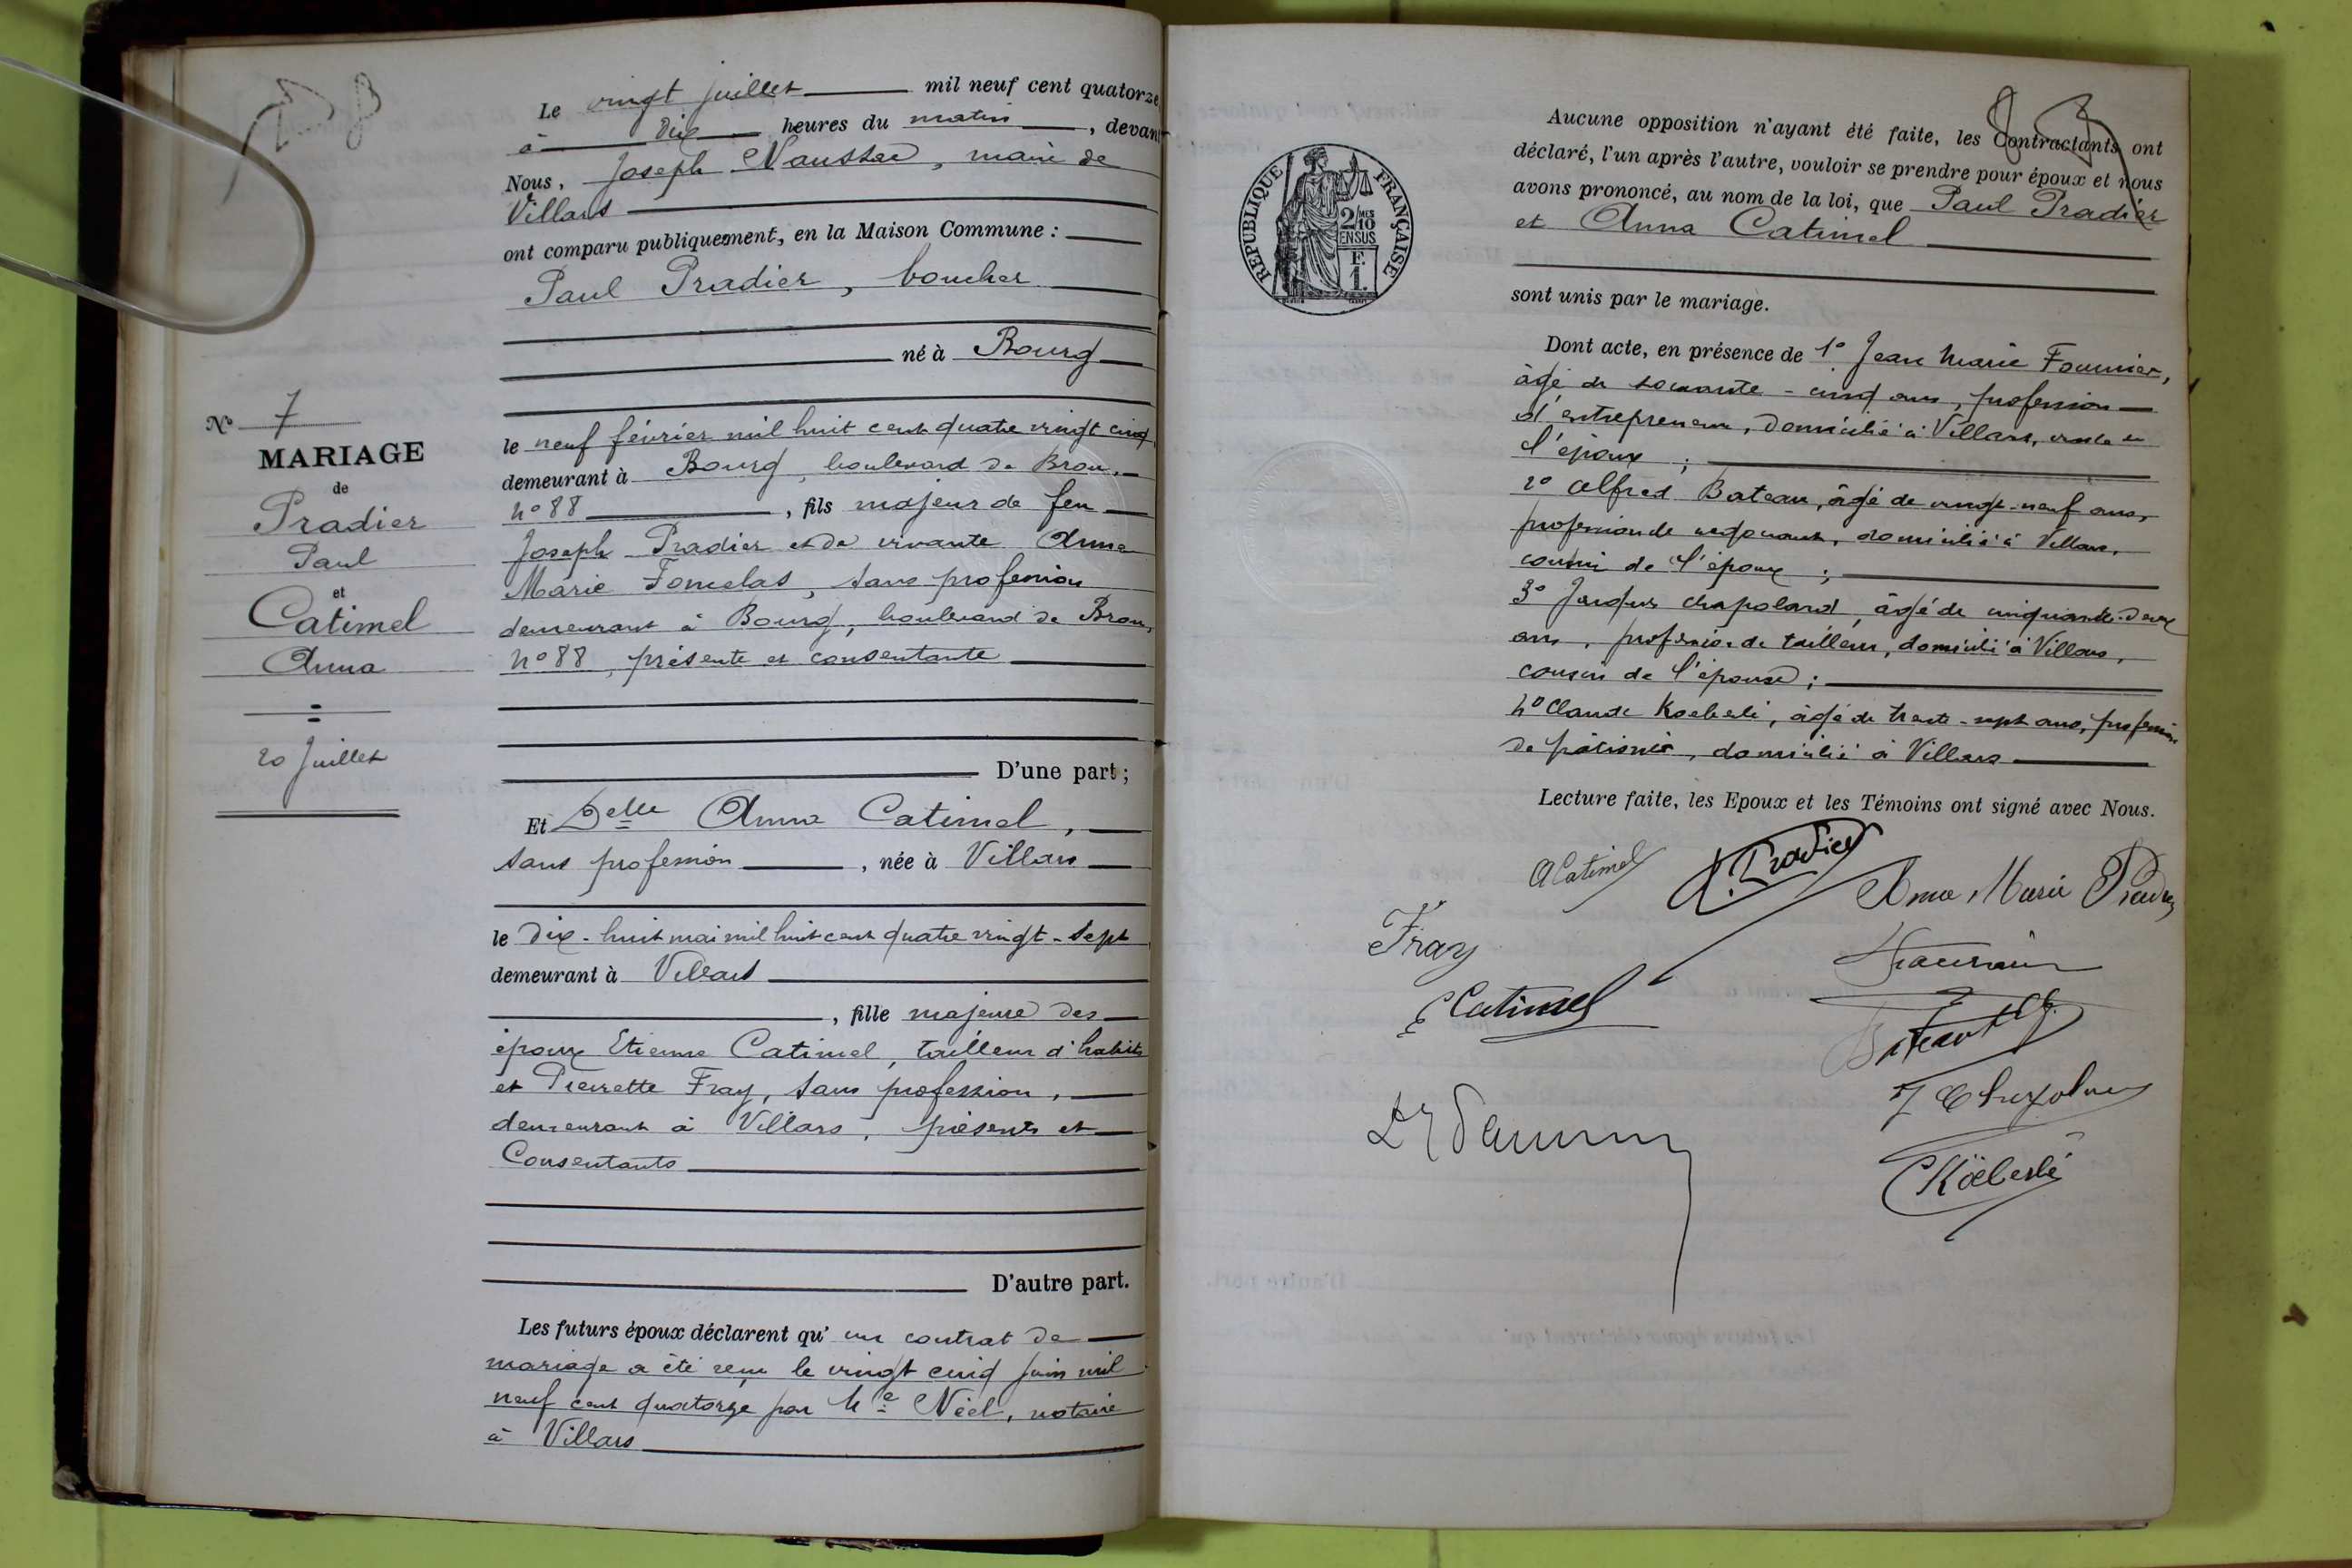 Le vingt juillet mil neuf cent quatorze
à dix heures du matin, devant
Nous, Joseph, maire de
Villars
ont comparu publiquement, en la Maison Commune :
Paul Pradier, boucher
né à Bourg
N° 7
MARIAGE
de
Pradier
Paul
et
Catimel
Anna
20 Juillet
le neuf février mil huit cent quatre vingt cinq
demeurant à Bourg, boulevard de Brou,
n° 88, fils majeur de feu
Joseph Pradier et de vivante Anna
Marie, sans profession
demeurant à Bourg, boulevard de Brou,
n° 88, présente et consentante
D'une part ;
Et Delle Anna Catimel,
sans profession, née à Villars
le dix-huit mai mil huit cent quatre vingt-sept
demeurant à Villars
, fille majeure des
époux Etienne Catimel, tailleur d'habits
et Pierrette Fray, sans profession,
demeurant à Villars, présents et
Consentants
D'autre part.
Les futurs époux déclarent qu'un contrat de
mariage a été reçu le vingt cinq juin mil
neuf cent quatorze par Me Néel, notaire
à Villars
83
Aucune opposition n'ayant été faite, les Contractants ont
déclaré, l'un après l'autre, vouloir se prendre pour époux et nous
avons prononcé, au nom de la loi, que Paul Pradier
et Anna Catimel
sont unis par le mariage.
RÉPUBLIQUE FRANÇAISE
2/10 MES
EN SUS
F.
1.
Dont acte, en présence de 1° Jean Marie Fournier,
âgé de soixante-cinq ans, profession
d'entrepreneur, domicilié à Villars, oncle de
l'époux ;
2° Alfred Bateau, âgé de vingt-neuf ans,
profession de négociant, domicilié à Villars,
cousin de l'époux ;
3° Jacques Chapoland, âgé de cinquante-deux
ans, profession de tailleur, domicilié à Villars,
cousin de l'épouse ;
4° Claude Koeberlé, âgé de trente-sept ans, profession
de pâtissier, domicilié à Villars
Lecture faite, les Epoux et les Témoins ont signé avec Nous.
A Catimel
P. Pradier
Anna Marie
Fray
E Catimel
C Köeberlé